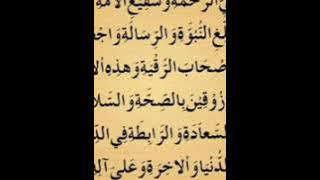 الرَّحْمَةِ وَشَفِيْعِ الْاُمَّةِ
غِ النُّبُوَّةِ وَالرِّسَالَةِ وَاجْ
صْحَابَ الرُّقْيَةِ وَهٰذِهِ الْا
زُوْقِيْنَ بِالصِّحَّةِ وَالسَّلَا
لسَّعَادَةِ وَالرَّابِطَةِ فِي الدِّ
لدُّنْيَا وَالْاٰخِرَةِ وَعَلٰى آلِهٖ